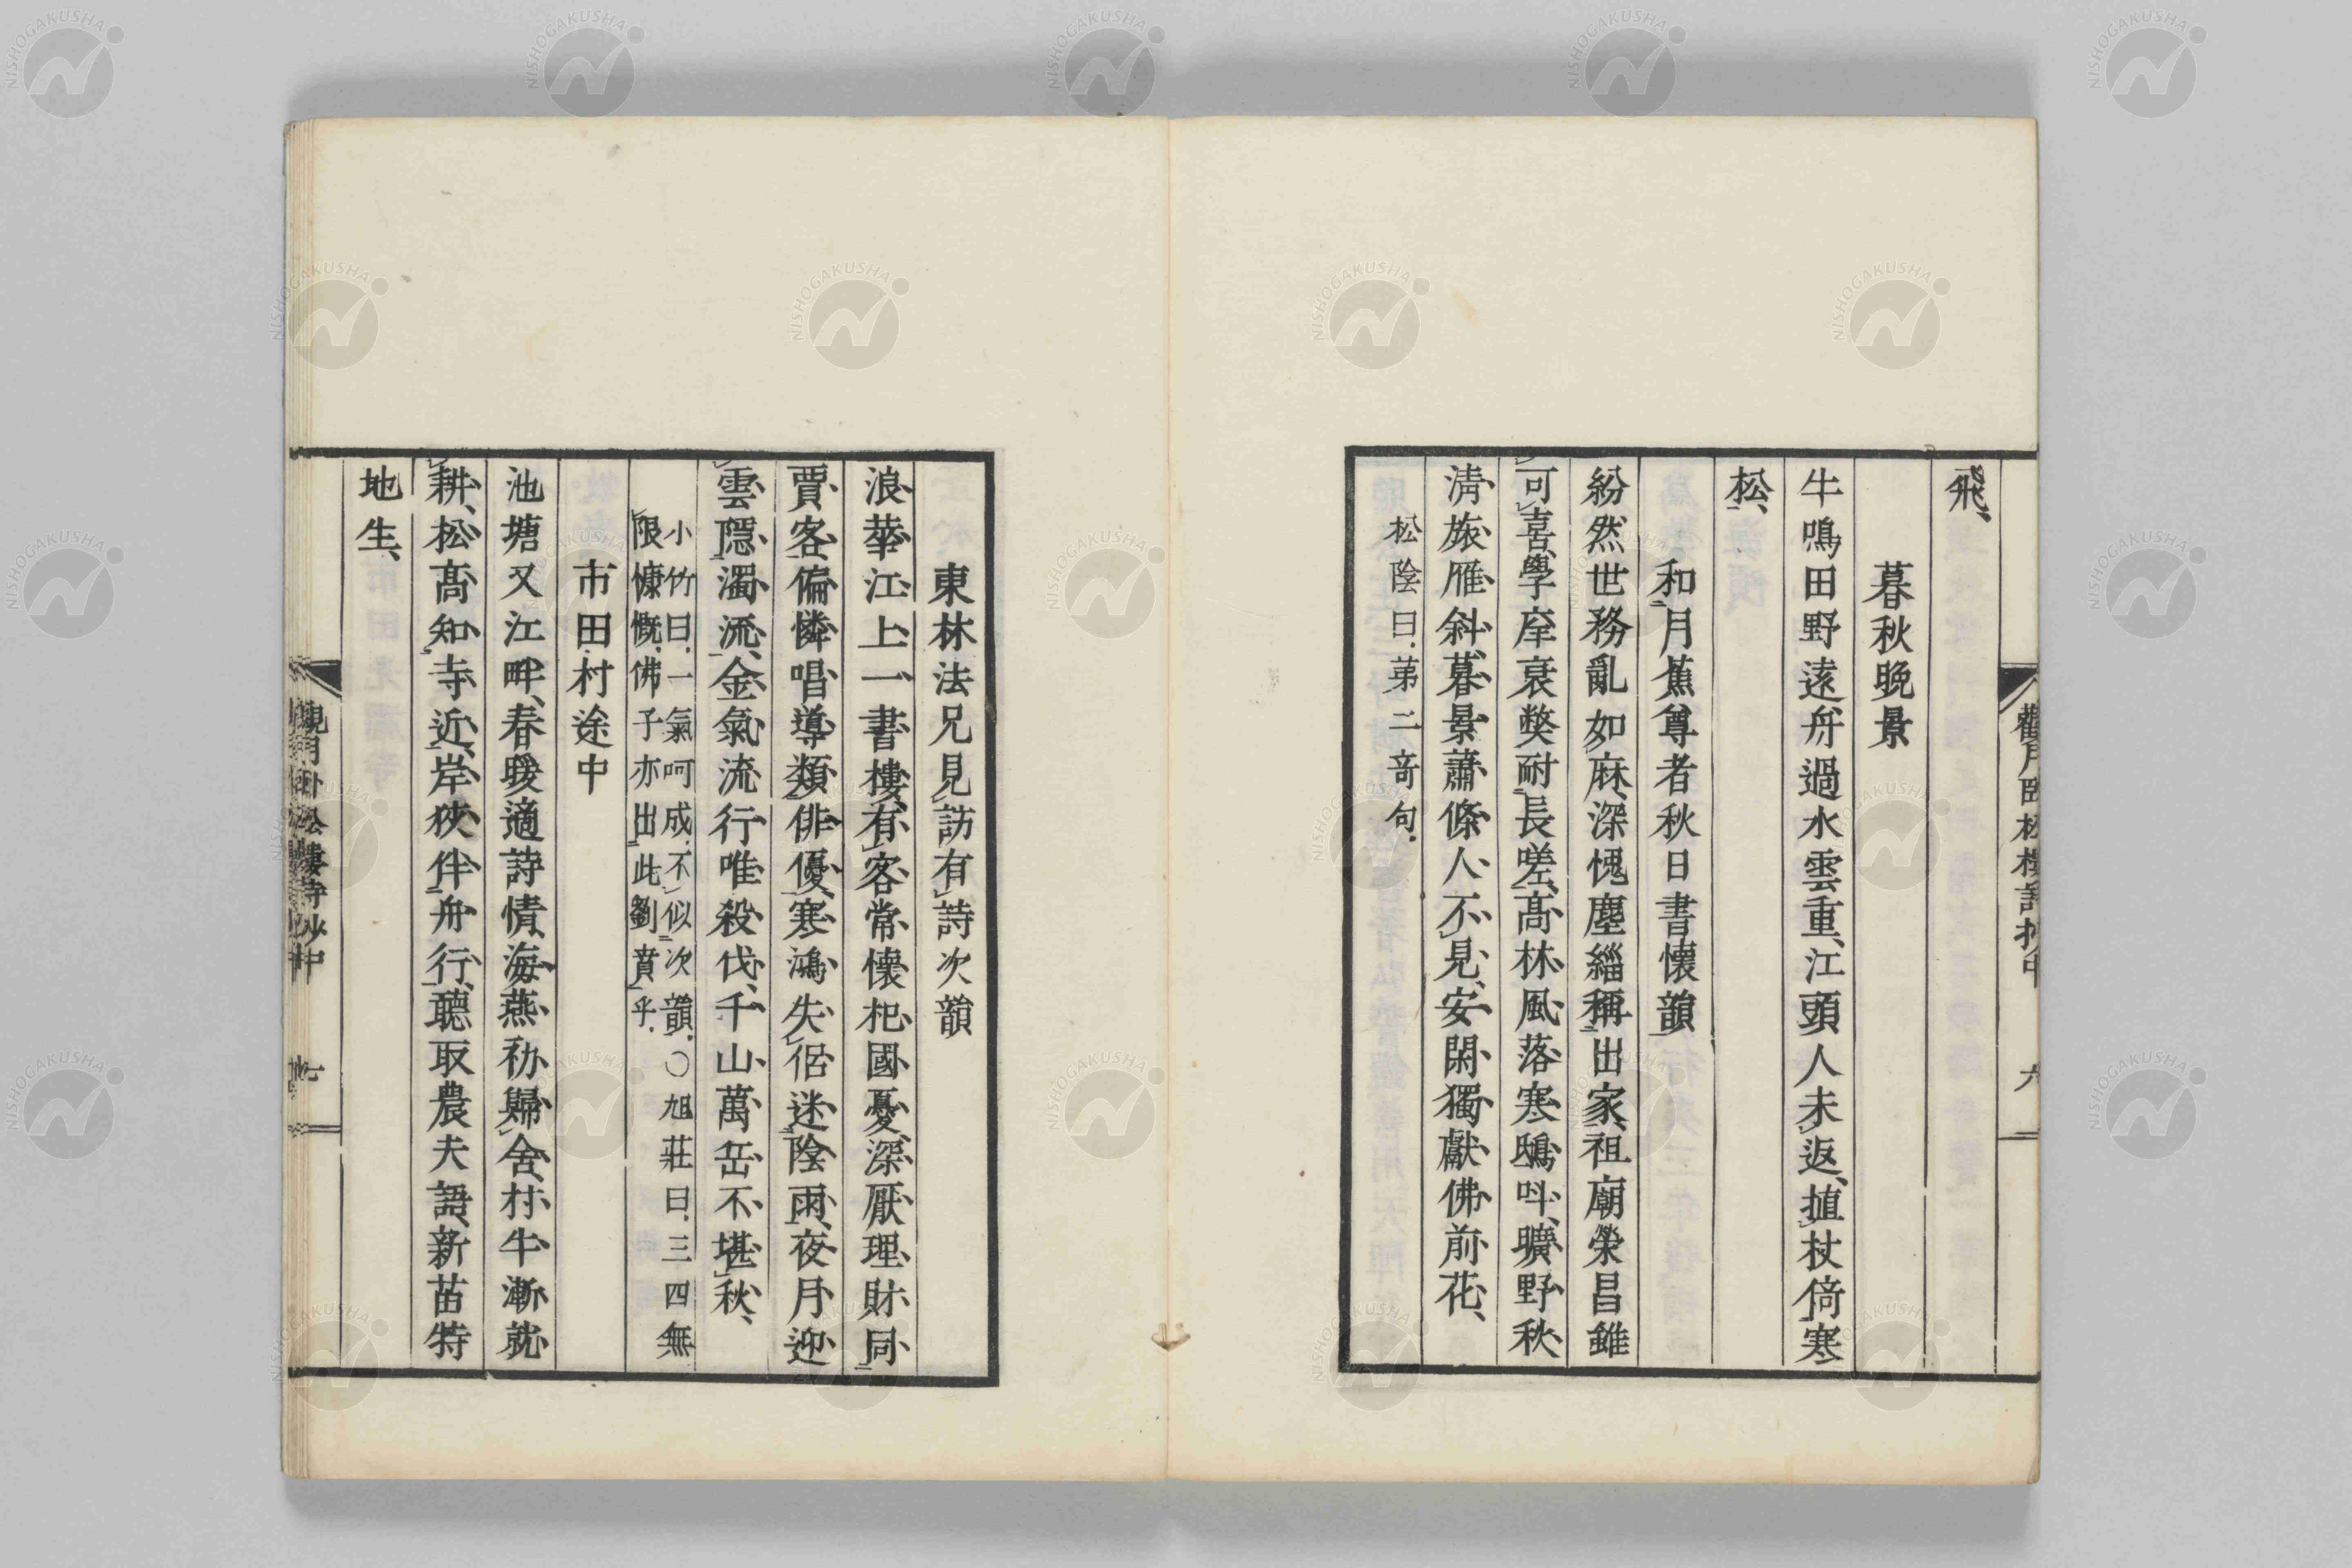 飛、
暮秋晩景
牛鳴田野遠、舟過水雲重、江頭人未返、植杖倚寒
松、
和月蕉尊者秋日書懷韻
紛然世務亂如麻、深愧塵緇稱出家、祖廟榮昌雖
可喜、學庠衰獘耐長嗟、高林風落寒鴟呌、曠野秋
淸旅雁斜、暮景蕭條人不見、安閑獨獻佛前花、
松陰曰、第二竒句、
東林法兄見訪有詩次韻
浪華江上一書樓、有客常懷杞國憂、深厭理財同
賈客、偏憐唱導類俳優、寒鴻失侶迷陰雨、夜月迎
雲隱濁流、金氣流行唯殺伐、千山萬岳不堪秋、
小竹曰、一氣呵成、不似次韻、〇旭莊曰、三四無
限慷慨、佛子亦出此劉蕡乎、
市田村途中
池塘又江畔、春暖適詩情、海燕初歸舍、村牛漸就
耕、松高知寺近、岸狹伴舟行、聽取農夫語、新苗特
地生、
觀月臥松樓詩抄中
七
觀月臥松樓詩抄中
六
NISHOGAKUSHA